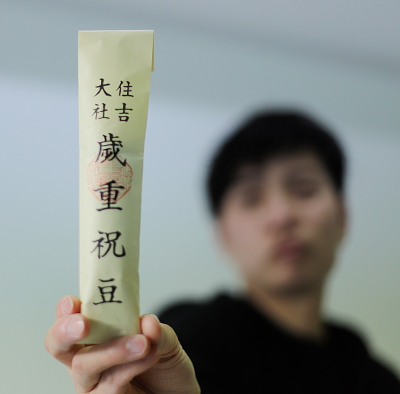 住吉
大社
歳重祝豆